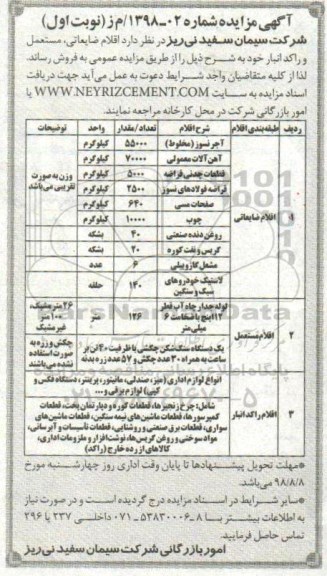 آگهی مزایده شماره ۰۲-۱۳۹۸/م ز (نوبت اول)
شرکت سیمان سفید نی ریز در نظر دارد اقلام ضایعاتی، مستعمل
و راکد انبار خود به شرح ذیل را از طریق مزایده عمومی به فروش رساند.
لذا از کلیه متقاضیان واجد شرایط دعوت به عمل می آید جهت دریافت
اسناد مزایده به سایت WWW.NEYRIZCEMENT.COM یا
امور بازرگانی شرکت در محل کارخانه مراجعه نمایند.
ردیف طبقه بندی اقلام شرح اقلام تعداد/مقدار واحد توضیحات
۱ اقلام ضایعاتی
آجر نسوز (مخلوط) ۵۵۰۰۰ کیلوگرم
آهن آلات معمولی ۷۰۰۰۰ کیلوگرم
قطعات چدنی قراضه ۵۰۰۰ کیلوگرم
قراضه فولادهای نسوز ۲۵۰۰ کیلوگرم
صفحات مسی ۶۴۰ کیلوگرم
چوب ۱۰۰۰۰ کیلوگرم
روغن دنده صنعتی ۴۰ بشکه
گریس و نفت کوره ۲۰ بشکه
مشعل گازوییلی ۶ عدد
لاستیک خودروهای سبک و سنگین ۱۴۰ حلقه
وزن به صورت
تقریبی می باشد
۲ اقلام مستعمل
لوله جدار چاه آب قطر
۱۲ اینچ با ضخامت ۶
میلی متر
۱۲۶ متر
۲۶ متر مشبک،
۱۰۰ متر
غیر مشبک
یک دستگاه سنگ شکن چکشی با ظرفیت ۲۰ تن بر
ساعت به همراه ۳۰ عدد چکش و ۵۷ عدد زره بدنه
چکش و زره به
صورت استفاده
نشده می باشند
۳ اقلام راکد انبار
انواع لوازم اداری (میز، صندلی، مانیتور، پرینتر، دستگاه فکس و
کپی) لوازم برقی و...
شامل: چرخ زنجیرها، قطعات کوره و دپارتمان پخت، قطعات
کمپرسورها، قطعات ماشین های نیمه سنگین، قطعات ماشین های
سواری، قطعات برق صنعتی و روشنایی، قطعات تأسیسات و آبرسانی،
مواد سوختی و روغن گریس ها، نوشت افزار و ملزومات اداری،
کالاهای از رده خارج (راکد)
*مهلت تحویل پیشنهادها تا پایان وقت اداری روز چهارشنبه مورخ
۹۸/۸/۸ می باشد.
*سایر شرایط در اسناد مزایده درج گردیده است و در صورت نیاز
به اطلاعات بیشتر با ۸-۵۳۸۳۰۰۰۶-۰۷۱ داخلی ۲۳۷ یا ۲۹۶
تماس حاصل فرمایید.
امور بازرگانی شرکت سیمان سفید نی ریز